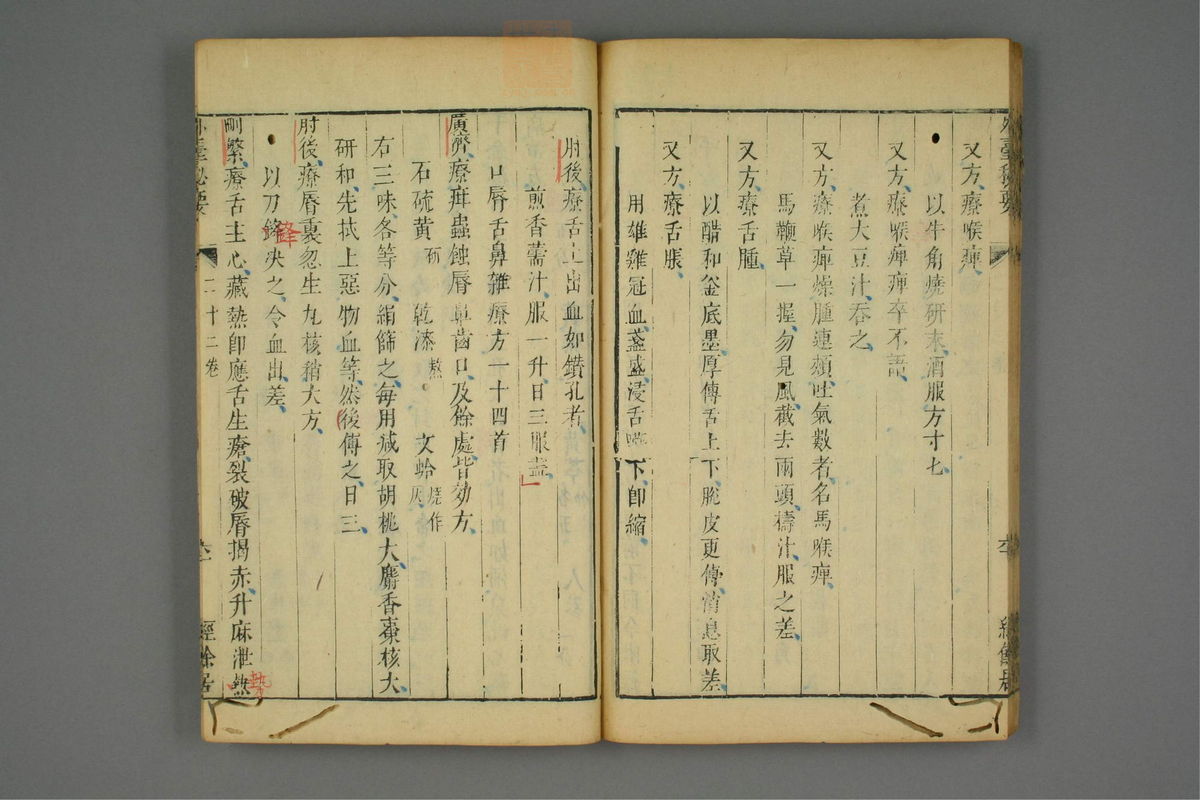 又方療喉痺
以牛角燒研末酒服方寸匕
又方療喉痺痺卒不語
煮大豆汁吞之
又方療喉痺燥腫連頰吐氣數者名馬喉痺
馬鞭草一握勿見風截去兩頭擣汁服之差
又方療舌腫
以醋和釜底墨厚傳舌上下脫皮更傳消息取差
又方療舌脹
用雄雞冠血盞盛浸舌嚥下卽縮
肘後療舌上出血如鑽孔者
煎香薷汁服一升日三服盡
口唇舌鼻雜療方一十四首
廣濟療疳蟲蝕唇鼻齒口及餘處皆効方
石硫黃研 乾漆熬 文蛤燒作灰
右三味各等分絹篩之每用減取胡桃大麝香棗核大
研和先拭上惡物血等然後傳之日三
肘後療唇裏忽生丸核稍大方
以刀鋒決之令血出差
刪繁療舌主心藏熱卽應舌生瘡裂破唇揭赤升麻泄熱
外臺秘要
二十二卷
經餘居